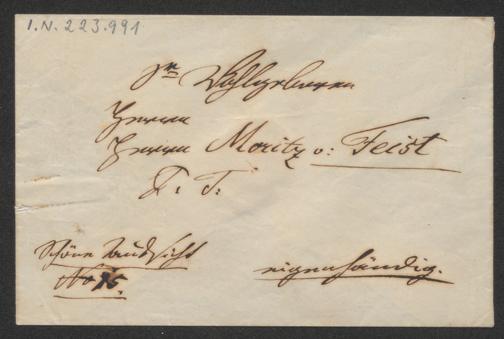 I.N. 223.991
Sr Wohlgeboren
Herrn
Herrn Moritz v: Feist
T. T:
Schöne Aussicht
No 15.
eigenhändig.